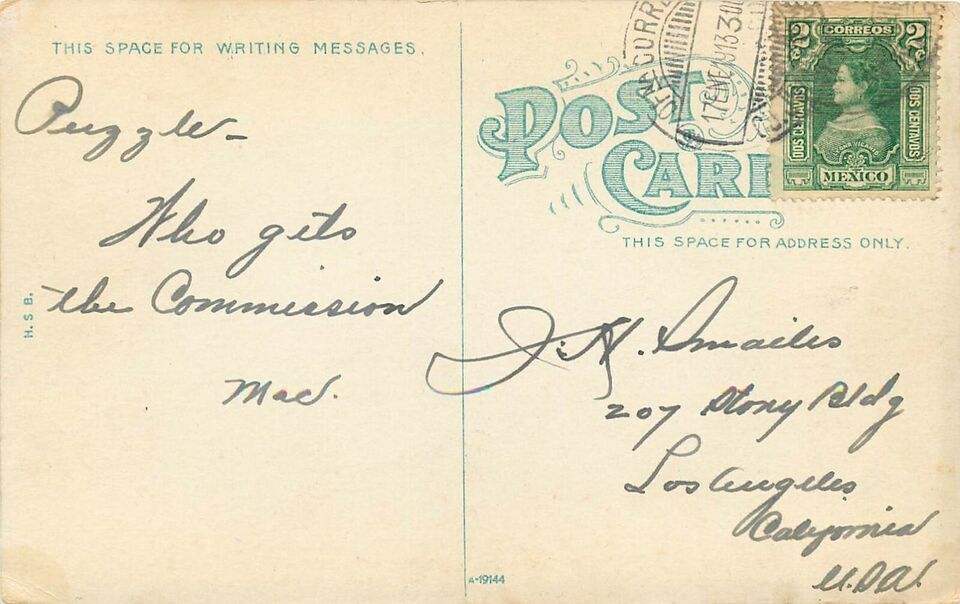 THIS SPACE FOR WRITING MESSAGES.
Puzzle-
Who gets
the Commission
Mac.
H. S. B.
POST CARD
THIS SPACE FOR ADDRESS ONLY.
2 CORREOS 2
DOS CENTAVOS
DOS CENTAVOS
MEXICO
J. H. Smailes
207 Story Bldg
Los Angeles
California
U.S.A.
A-19144